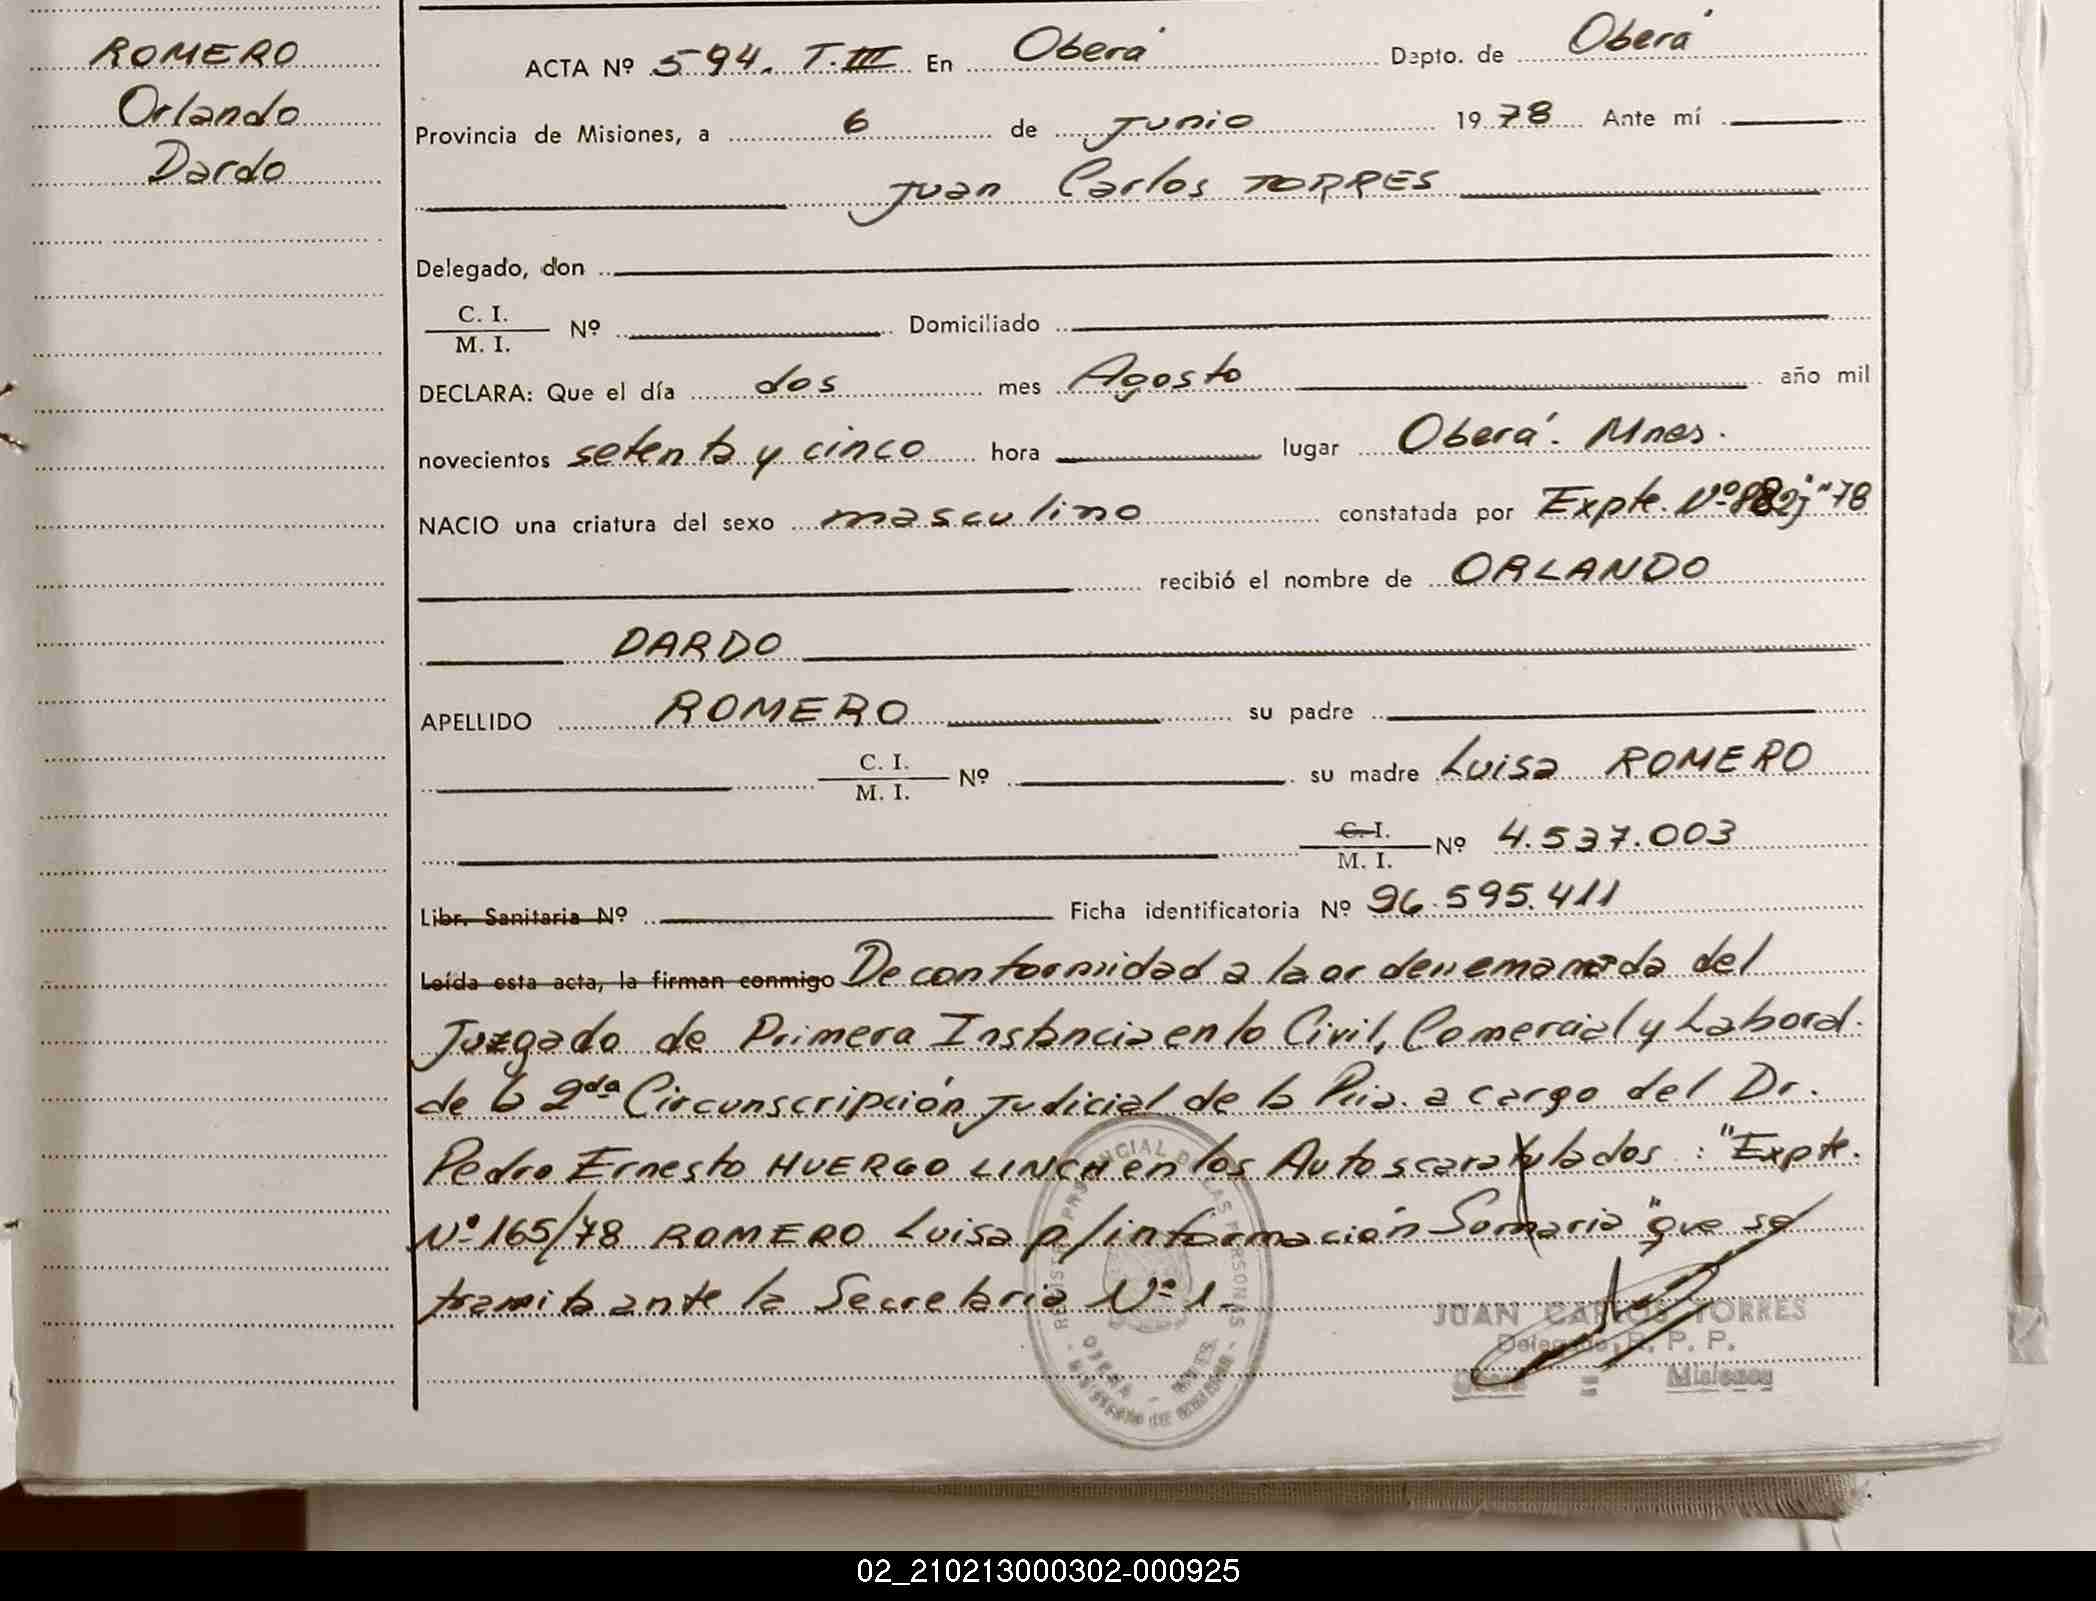 ROMERO
Orlando
Dardo
ACTA Nº 594. T.III En Oberá Dpto. de Oberá
Provincia de Misiones, a 6 de Junio 1978 Ante mí
Juan Carlos TORRES
Delegado, don
C. I.
M. I.
Nº Domiciliado
DECLARA: Que el día dos mes Agosto año mil
novecientos setenta y cinco hora lugar Oberá. Mnes.
NACIO una criatura del sexo masculino constatada por Expte. Nº 78
recibió el nombre de ORLANDO
DARDO
APELLIDO ROMERO su padre
C. I.
M. I.
Nº su madre Luisa ROMERO
C. I.
M. I.
Nº 4.537.003
Libr. Sanitaria Nº Ficha identificatoria Nº 96.595.411
Leída esta acta, la firman conmigo De conformidad a la orden emanada del
Juzgado de Primera Instancia en lo Civil, Comercial y Laboral.
de la 2da Circunscripción Judicial de la Pcia. a cargo del Dr.
Pedro Ernesto HUERGO LINCH en los Autos caratulados : "Expte.
Nº 165/78 ROMERO Luisa p/información Somaria" que se
tramita ante la Secretaria Nº 1.
JUAN CARLOS TORRES
Delegado, R. P. P.
Oberá = Misiones
REGISTRO PROVINCIAL DE LAS PERSONAS
OBERA - MNES.
02_210213000302-000925